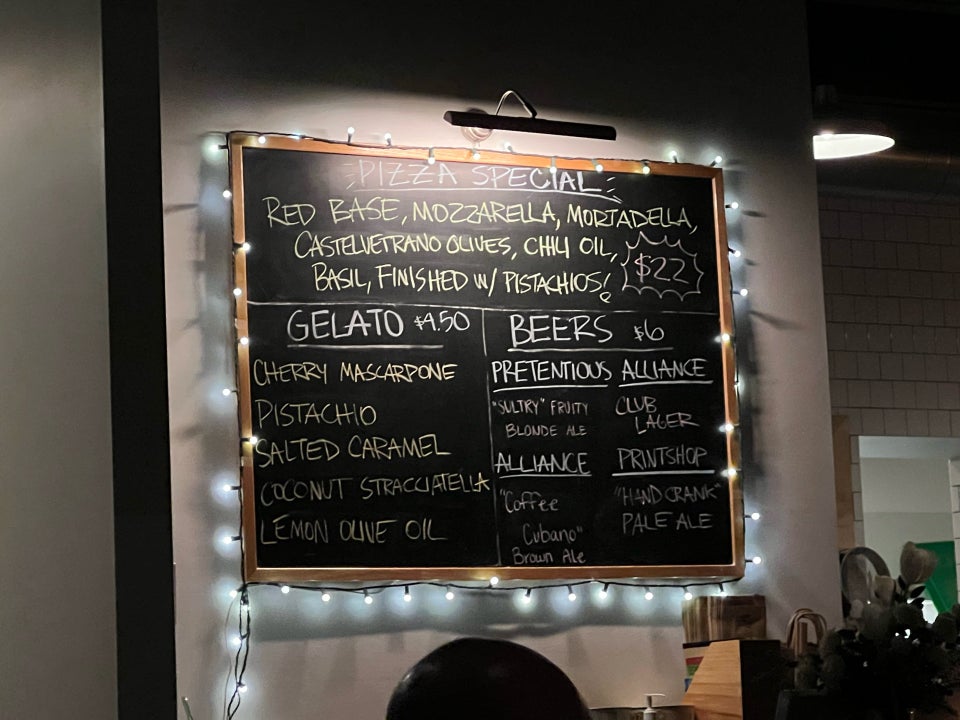 PIZZA SPECIAL
RED BASE, MOZZARELLA, MORTADELLA,
CASTELVETRANO OLIVES, CHILI OIL,
BASIL, FINISHED W/ PISTACHIOS!
$22
GELATO $4.50
CHERRY MASCARPONE
PISTACHIO
SALTED CARAMEL
COCONUT STRACCIATELLA
LEMON OLIVE OIL
BEERS $6
PRETENTIOUS
"SULTRY" FRUITY
BLONDE ALE
ALLIANCE
CLUB
LAGER
ALLIANCE
"Coffee
Cubano"
Brown Ale
PRINTSHOP
"HAND CRANK"
PALE ALE